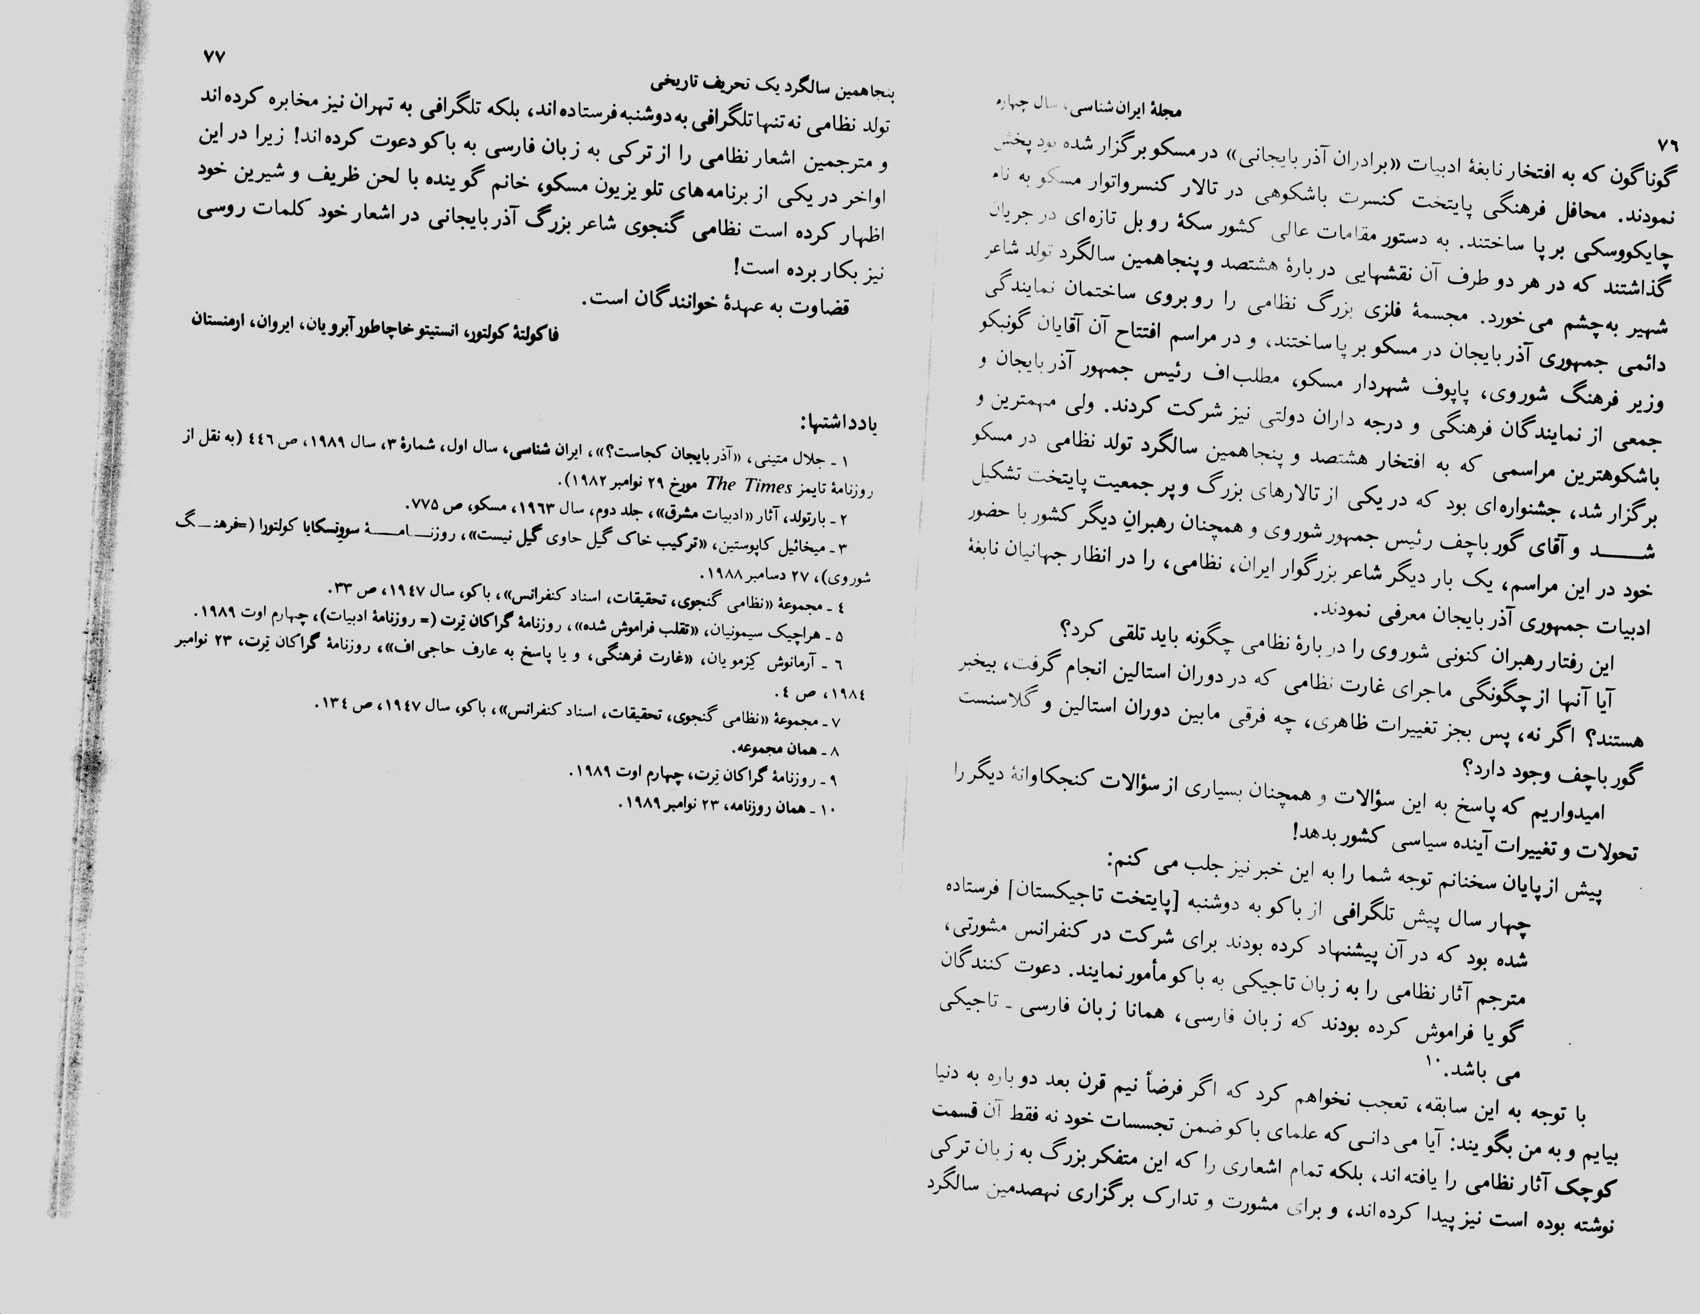 ۷۶
مجلهٔ ایران‌شناسی، سال چهارم
گوناگون که به افتخار نابغهٔ ادبیات «برادران آذربایجانی» در مسکو برگزار شده بود پخش
نمودند. محافل فرهنگی پایتخت کنسرت باشکوهی در تالار کنسرواتوار مسکو به نام
چایکووسکی بر پا ساختند. به دستور مقامات عالی کشور سکهٔ روبل تازه‌ای در جریان
گذاشتند که در هر دو طرف آن نقشهایی دربارهٔ هشتصد و پنجاهمین سالگرد تولد شاعر
شهیر به‌چشم می‌خورد. مجسمهٔ فلزی بزرگ نظامی را رو بروی ساختمان نمایندگی
دائمی جمهوری آذربایجان در مسکو بر پا ساختند، و در مراسم افتتاح آن آقایان گونبکو
وزیر فرهنگ شوروی، پاپوف شهردار مسکو، مطلب‌اف رئیس جمهور آذربایجان و
جمعی از نمایندگان فرهنگی و درجه داران دولتی نیز شرکت کردند. ولی مهمترین و
باشکوهترین مراسمی که به افتخار هشتصد و پنجاهمین سالگرد تولد نظامی در مسکو
برگزار شد، جشنواره‌ای بود که در یکی از تالارهای بزرگ و پر جمعیت پایتخت تشکیل
شد و آقای گورباچف رئیس جمهور شوروی و همچنان رهبران دیگر کشور با حضور
خود در این مراسم، یک بار دیگر شاعر بزرگوار ایران، نظامی، را در انظار جهانیان نابغهٔ
ادبیات جمهوری آذربایجان معرفی نمودند.
این رفتار رهبران کنونی شوروی را دربارهٔ نظامی چگونه باید تلقی کرد؟
آیا آنها از چگونگی ماجرای غارت نظامی که در دوران استالین انجام گرفت، بیخبر
هستند؟ اگر نه، پس بجز تغییرات ظاهری، چه فرقی مابین دوران استالین و گلاسنست
گورباچف وجود دارد؟
امیدواریم که پاسخ به این سؤالات و همچنان بسیاری از سؤالات کنجکاوانهٔ دیگر را
تحولات و تغییرات آینده سیاسی کشور بدهد!
پیش از پایان سخنانم توجه شما را به این خبر نیز جلب می کنم:
چهار سال پیش تلگرافی از باکو به دوشنبه [پایتخت تاجیکستان] فرستاده
شده بود که در آن پیشنهاد کرده بودند برای شرکت در کنفرانس مشورتی،
مترجم آثار نظامی را به زبان تاجیکی به باکو مأمور نمایند. دعوت کنندگان
گویا فراموش کرده بودند که زبان فارسی، همانا زبان فارسی ـ تاجیکی
می باشد.۱۰
با توجه به این سابقه، تعجب نخواهم کرد که اگر فرضأ نیم قرن بعد دوباره به دنیا
بیایم و به من بگویند: آیا می دانی که علمای باکو ضمن تجسسات خود نه فقط آن قسمت
کوچک آثار نظامی را یافته‌اند، بلکه تمام اشعاری را که این متفکر بزرگ به زبان ترکی
نوشته بوده است نیز پیدا کرده‌اند، و برای مشورت و تدارک برگزاری نهصدمین سالگرد
۷۷
پنجاهمین سالگرد یک تحریف تاریخی
تولد نظامی نه تنها تلگرافی به دوشنبه فرستاده‌اند، بلکه تلگرافی به تهران نیز مخابره کرده‌اند
و مترجمین اشعار نظامی را از ترکی به زبان فارسی به باکو دعوت کرده‌اند! زیرا در این
اواخر در یکی از برنامه‌های تلویزیون مسکو، خانم گوینده با لحن ظریف و شیرین خود
اظهار کرده است نظامی گنجوی شاعر بزرگ آذربایجانی در اشعار خود کلمات روسی
نیز بکار برده است!
قضاوت به عهدهٔ خوانندگان است.
فاکولتهٔ کولتور، انستیتو خاچاطور آبرویان، ایروان، ارمنستان
یادداشتها:
۱ ـ جلال متینی، «آذربایجان کجاست؟»، ایران شناسی، سال اول، شمارهٔ ۳، سال ۱۹۸۹، ص ۴۴۶ (به نقل از
روزنامهٔ تایمز The Times مورخ ۲۹ نوامبر ۱۹۸۲).
۲ ـ بارتولد، آثار «ادبیات مشرق»، جلد دوم، سال ۱۹۶۳، مسکو، ص ۷۷۵.
۳ ـ میخائیل کاپوستین، «ترکیب خاک گیل حاوی گیل نیست»، روزنامهٔ سووِتسکایا کولتورا (=فرهنگ
شوروی)، ۲۷ دسامبر ۱۹۸۸.
۴ ـ مجموعهٔ «نظامی گنجوی، تحقیقات، اسناد کنفرانس»، باکو، سال ۱۹۴۷، ص ۳۳.
۵ ـ هراچیک سیمونیان، «تقلب فراموش شده»، روزنامهٔ گراکان تِرت (= روزنامهٔ ادبیات)، چهارم اوت ۱۹۸۹.
۶ ـ آرمانوش کِزمویان، «غارت فرهنگی، و یا پاسخ به عارف حاجی‌اف»، روزنامهٔ گراکان تِرت، ۲۳ نوامبر
۱۹۸۴، ص ۴.
۷ ـ مجموعهٔ «نظامی گنجوی، تحقیقات، اسناد کنفرانس»، باکو، سال ۱۹۴۷، ص ۱۳۴.
۸ ـ همان مجموعه.
۹ ـ روزنامهٔ گراکان تِرت، چهارم اوت ۱۹۸۹.
۱۰ ـ همان روزنامه، ۲۳ نوامبر ۱۹۸۹.